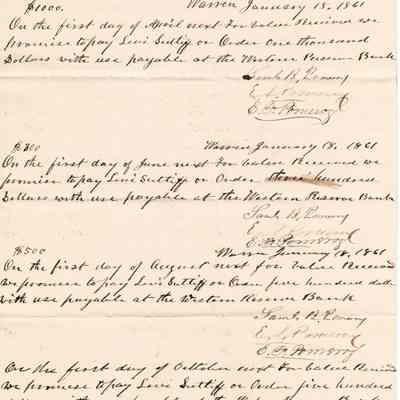 $1000. Warren January 18. 1861
On the first day of April next For Value Received we
promise to pay Levi Sutliff or Order One thousand
Dollars with use payable at the Western Reserve Bank
Saml B. Pomeroy
E. S. Pomeroy
E. F. Pomeroy
$300 Warren January 18. 1861
On the first day of June next For Value Received we
promise to pay Levi Sutliff or Order three hundred
Dollars with use payable at the Western Reserve Bank
Saml B. Pomeroy
E. S. Pomeroy
E. F. Pomeroy
$500 Warren January 18, 1861
On the first day of August next for Value Received
we promise to pay Levi Sutliff or Order five hundred dolls
with use payable at the Western Reserve Bank
Saml B. Pomeroy
E. S. Pomeroy
E. F. Pomeroy
On the first day of October next For Value Received
we promise to pay Levi Sutliff or Order five hundred